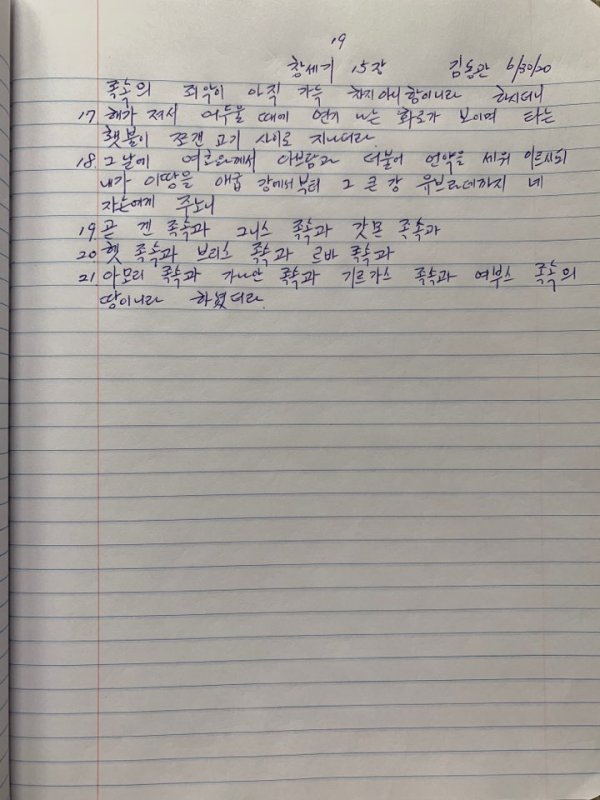 19
창세기 15장 김동관 6/30/20
족속의 죄악이 아직 가득 차지 아니함이니라 하시더니
17. 해가 져서 어두울 때에 연기 나는 화로가 보이며 타는
횃불이 쪼갠 고기 사이로 지나더라
18. 그 날에 여호와께서 아브람과 더불어 언약을 세워 이르시되
내가 이땅을 애굽 강에서부터 그 큰 강 유브라데까지 네
자손에게 주노니
19. 곧 겐 족속과 그니스 족속과 갓몬 족속과
20. 헷 족속과 브리스 족속과 르바 족속과
21. 아모리 족속과 가나안 족속과 기르가스 족속과 여부스 족속의
땅이니라 하셨더라